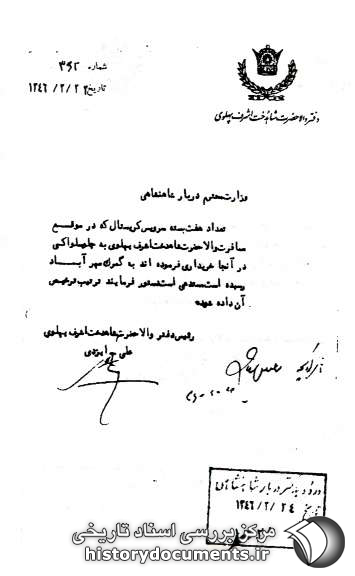 دفتر والاحضرت شاهدخت اشرف پهلوی
شماره ۳۶۲
تاریخ ۱۳۴۶/۲/۲۳
وزارت محترم دربار شاهنشاهی
تعداد هفت بسته سرویس کریستال که در موقع
مسافرت والاحضرت شاهدخت اشرف پهلوی به چکسلواکی
در آنجا خریداری فرموده اند به گمرک مهرآباد
رسیده است مستدعی است دستور فرمایند ترتیب ترخیص
آن داده شود
رئیس دفتر والاحضرت شاهدخت اشرف پهلوی
علی ایزدی
ورود به دفتر دربار شاهنشاهی
تاریخ ۱۳۴۶/۲/۲۴
مرکز بررسی اسناد تاریخی
historydocuments.ir